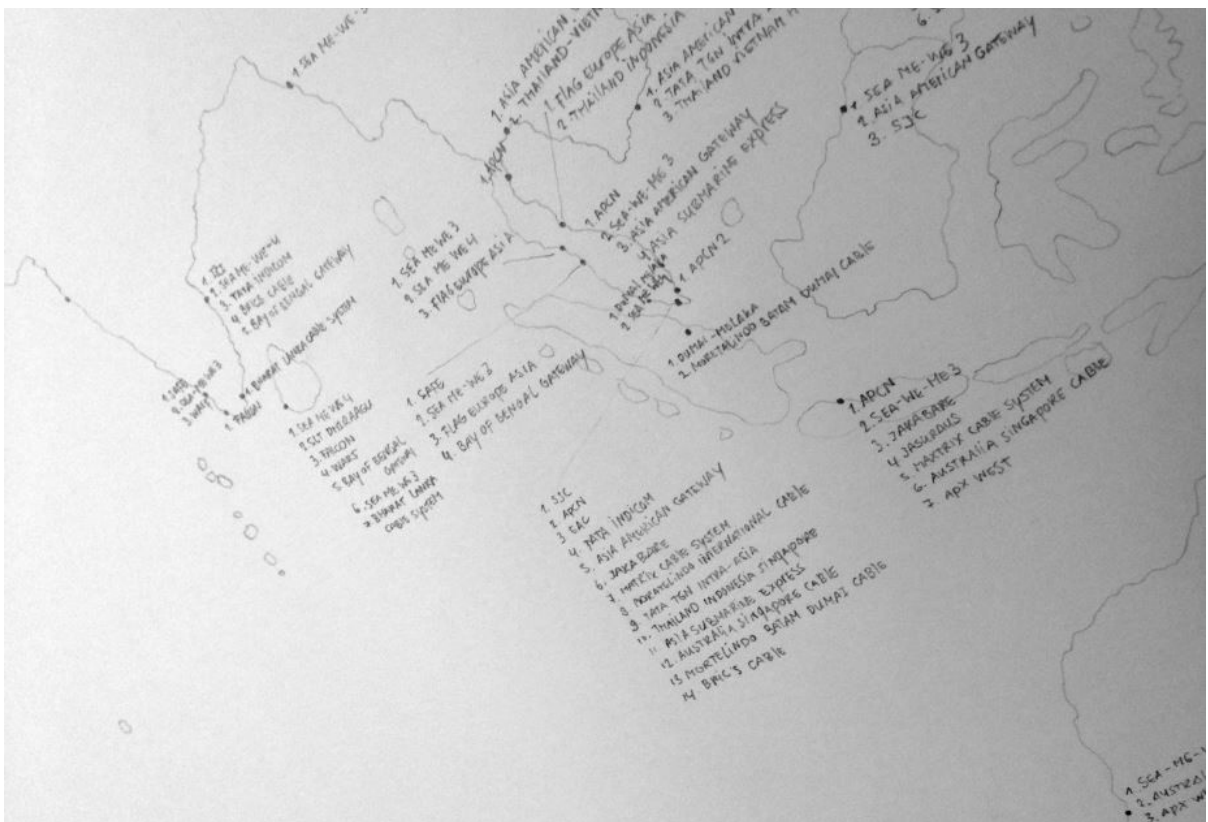 1. SEA ME-WE-
1. ASIA AMERICAN
2. THAILAND-VIETN
1. FLAG EUROPE ASIA
2. THAILAND INDONESIA
1. ASIA AMERICAN
2. TATA TGN INTRA
3. THAILAND VIETNAM H
1. SEA ME-WE 3
2. ASIA AMERICAN GATEWAY
3. SJC
1. APCN
1. APCN
2. SEA-WE-ME 3
3. ASIA AMERICAN GATEWAY
4. ASIA SUBMARINE EXPRESS
2. SEA ME-WE-4
3. TATA INDICOM
4. BRICS CABLE
5. BAY OF BENGAL GATEWAY
1. SEA ME WE 3
2. SEA ME WE 4
3. FLAG EUROPE ASIA
1. DUMAI MELAKA
1. APCN 2
1. DUMAI-MELAKA
2. MORETALINDO BATAM DUMAI CABLE
2. SEA ME WE 3
1. BHARAT LANKA CABLE-SYSTEM
1. FALCON
1. SEA ME WE 4
2. SLT DHIRAAGU
3. FALCON
4. WARS
5. BAY OF BENGAL
GATEWAY
6. SEA ME WE 3
7. BHARAT LANKA
CABLE SYSTEM
1. SAFE
2. SEA ME-WE 3
3. FLAG EUROPE ASIA
4. BAY OF BENGAL GATEWAY
1. APCN
2. SEA-WE-ME 3
3. JAKABARE
4. JASURAUS
5. MAXTRIX CABLE SYSTEM
6. AUSTRALIA SINGAPORE CABLE
7. APX WEST
1. SJC
2. APCN
3. EAC
4. TATA INDICOM
5. ASIA AMERICAN GATEWAY
6. JAKA BARE
7. MATRIX CABLE SYSTEM
8. MORATELINDO INTERNATIONAL CABLE
9. TATA TGN INTRA-ASIA
10. THAILAND INDONESIA SINGAPORE
11. ASIA SUBMARINE EXPRESS
12. AUSTRALIA SINGAPORE CABLE
13 MORTELINDO BATAM DUMAI CABLE
14 BRIC'S CABLE
1. SEA-ME-
2. AUSTRAL
3. APX W